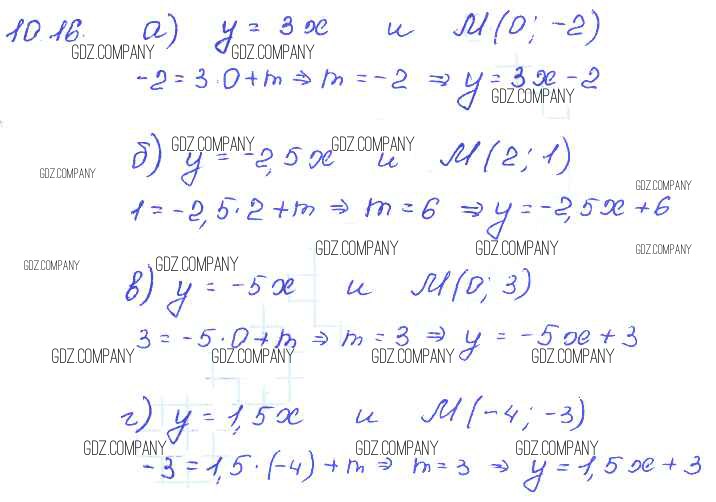 10.16. а) y = 3x и M(0; -2)
GDZ.COMPANY GDZ.COMPANY
-2 = 3·0 + m ⇒ m = -2 ⇒ y = 3x - 2
GDZ.COMPANY
GDZ.COMPANY GDZ.COMPANY
б) y = -2,5x и M(2; 1)
GDZ.COMPANY
GDZ.COMPANY
1 = -2,5·2 + m ⇒ m = 6 ⇒ y = -2,5x + 6
GDZ.COMPANY GDZ.COMPANY GDZ.COMPANY
GDZ.COMPANY GDZ.COMPANY
в) y = -5x и M(0; 3)
3 = -5·0 + m ⇒ m = 3 ⇒ y = -5x + 3
GDZ.COMPANY GDZ.COMPANY GDZ.COMPANY GDZ.COMPANY
г) y = 1,5x и M(-4; -3)
GDZ.COMPANY GDZ.COMPANY GDZ.COMPANY
-3 = 1,5·(-4) + m ⇒ m = 3 ⇒ y = 1,5x + 3